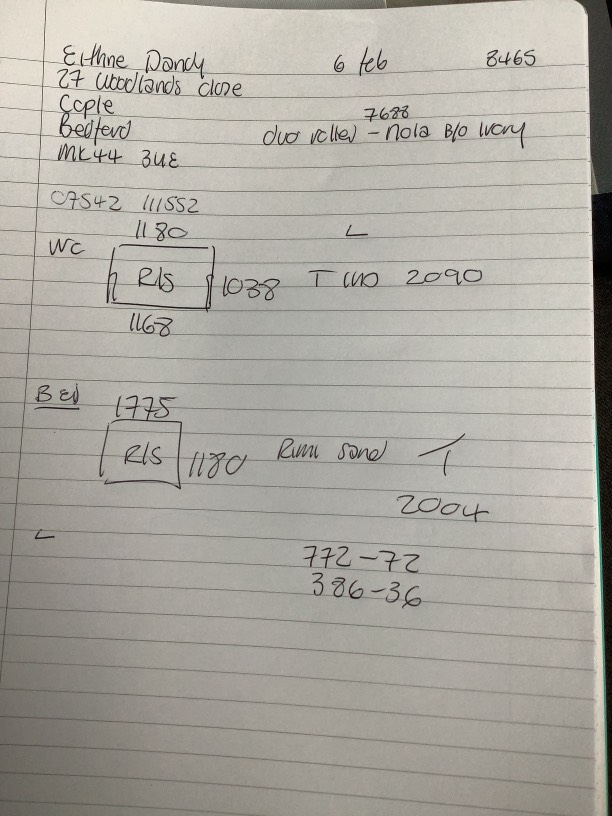 Eithne Dandy 6 feb 8465
27 Woodlands close
Cople
Bedford
7688
duo roller - nola B/O Ivory
MK44 3UE
07542 111552
1180 L
WC R/S 1038 T 2090
1168
Bed 1775
R/S 1180 Rimi sand T
2004
L
772-72
386-36